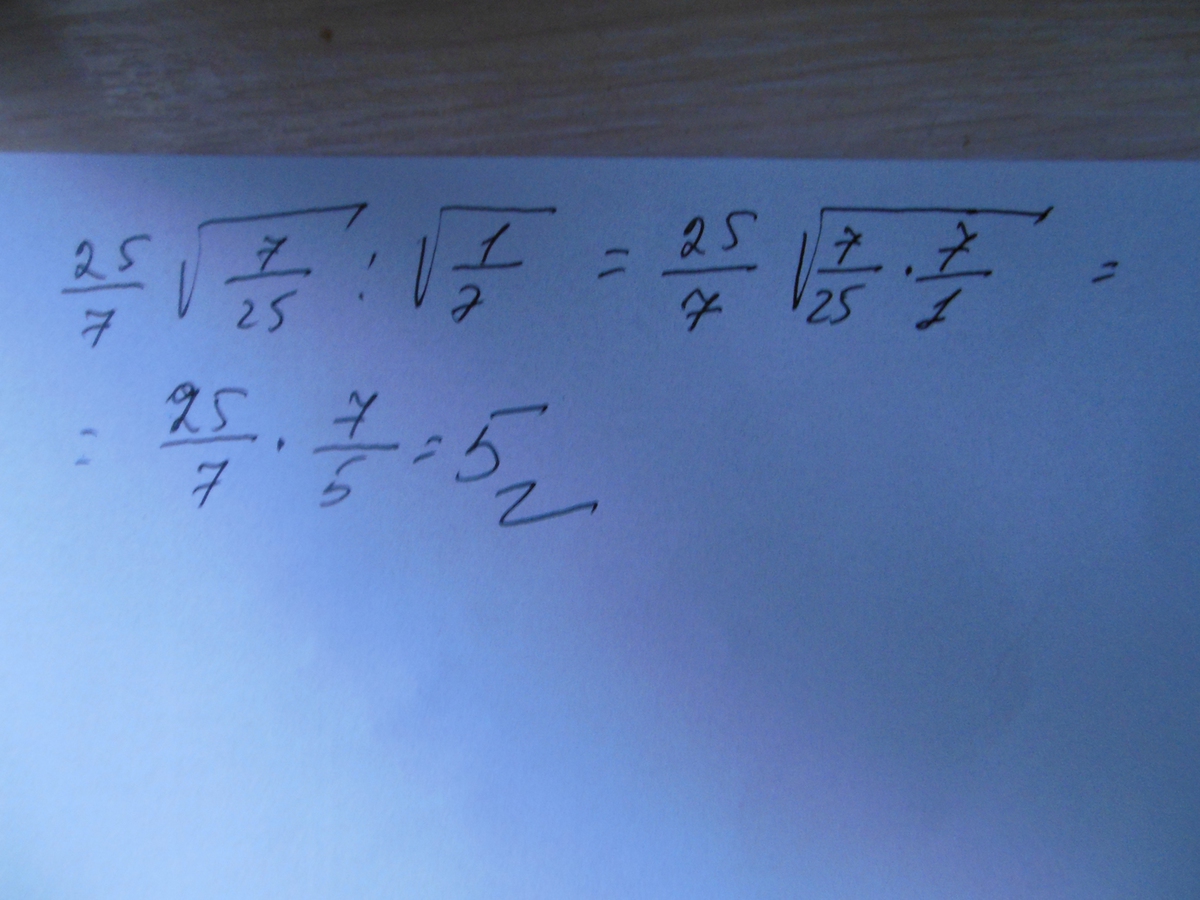 25/7 √(7/25) : √(1/7) = 25/7 √(7/25 · 7/1) =
= 25/7 · 7/5 = 5